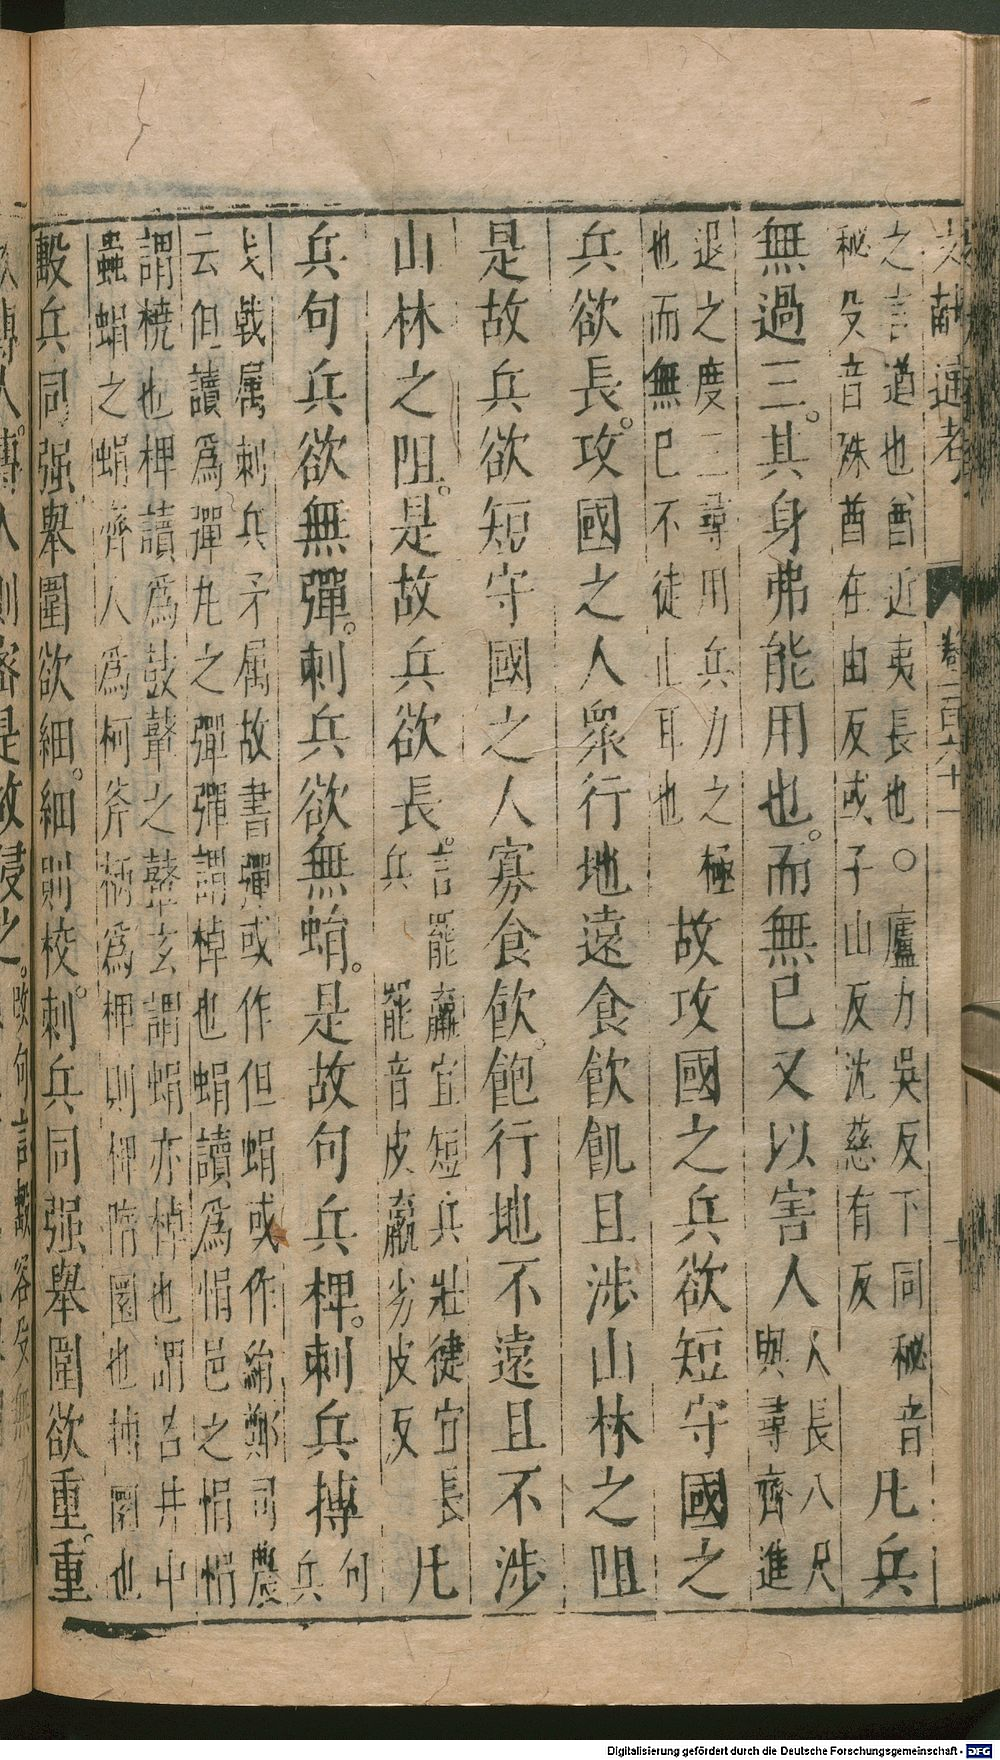 文獻通考 卷一百六十一
之言遒也酋近夷長也○廬力吳反下同祕音
祕殳音殊酋在由反或子由反沈慈有反
凡兵
無過三其身弗能用也而無已又以害人
人長八尺
與尋齊進
退之度三尋用兵力之極
也而無已不徒止耳也
故攻國之兵欲短守國之
兵欲長攻國之人衆行地遠食飲飢且涉山林之阻
是故兵欲短守國之人寡食飲飽行地不遠且不涉
山林之阻是故兵欲長
言罷羸宜短兵壯健宜長
兵 罷音皮羸劣皮反
凡
兵句兵欲無彈刺兵欲無蜎是故句兵椑刺兵摶
句
兵
戈戟属刺兵矛属故書彈或作但蜎或作絹鄭司農
云但讀爲彈丸之彈彈謂掉也蜎讀爲悁邑之悁悁
謂橈也椑讀爲鼓鼙之鼙玄謂蜎亦掉也謂若井中
蟲蜎之蜎齊人爲柯斧柄爲椑則椑隋圜也摶圜也
毄兵同强舉圍欲細細則校刺兵同强舉圍欲重重
Digitalisierung gefördert durch die Deutsche Forschungsgemeinschaft - DFG